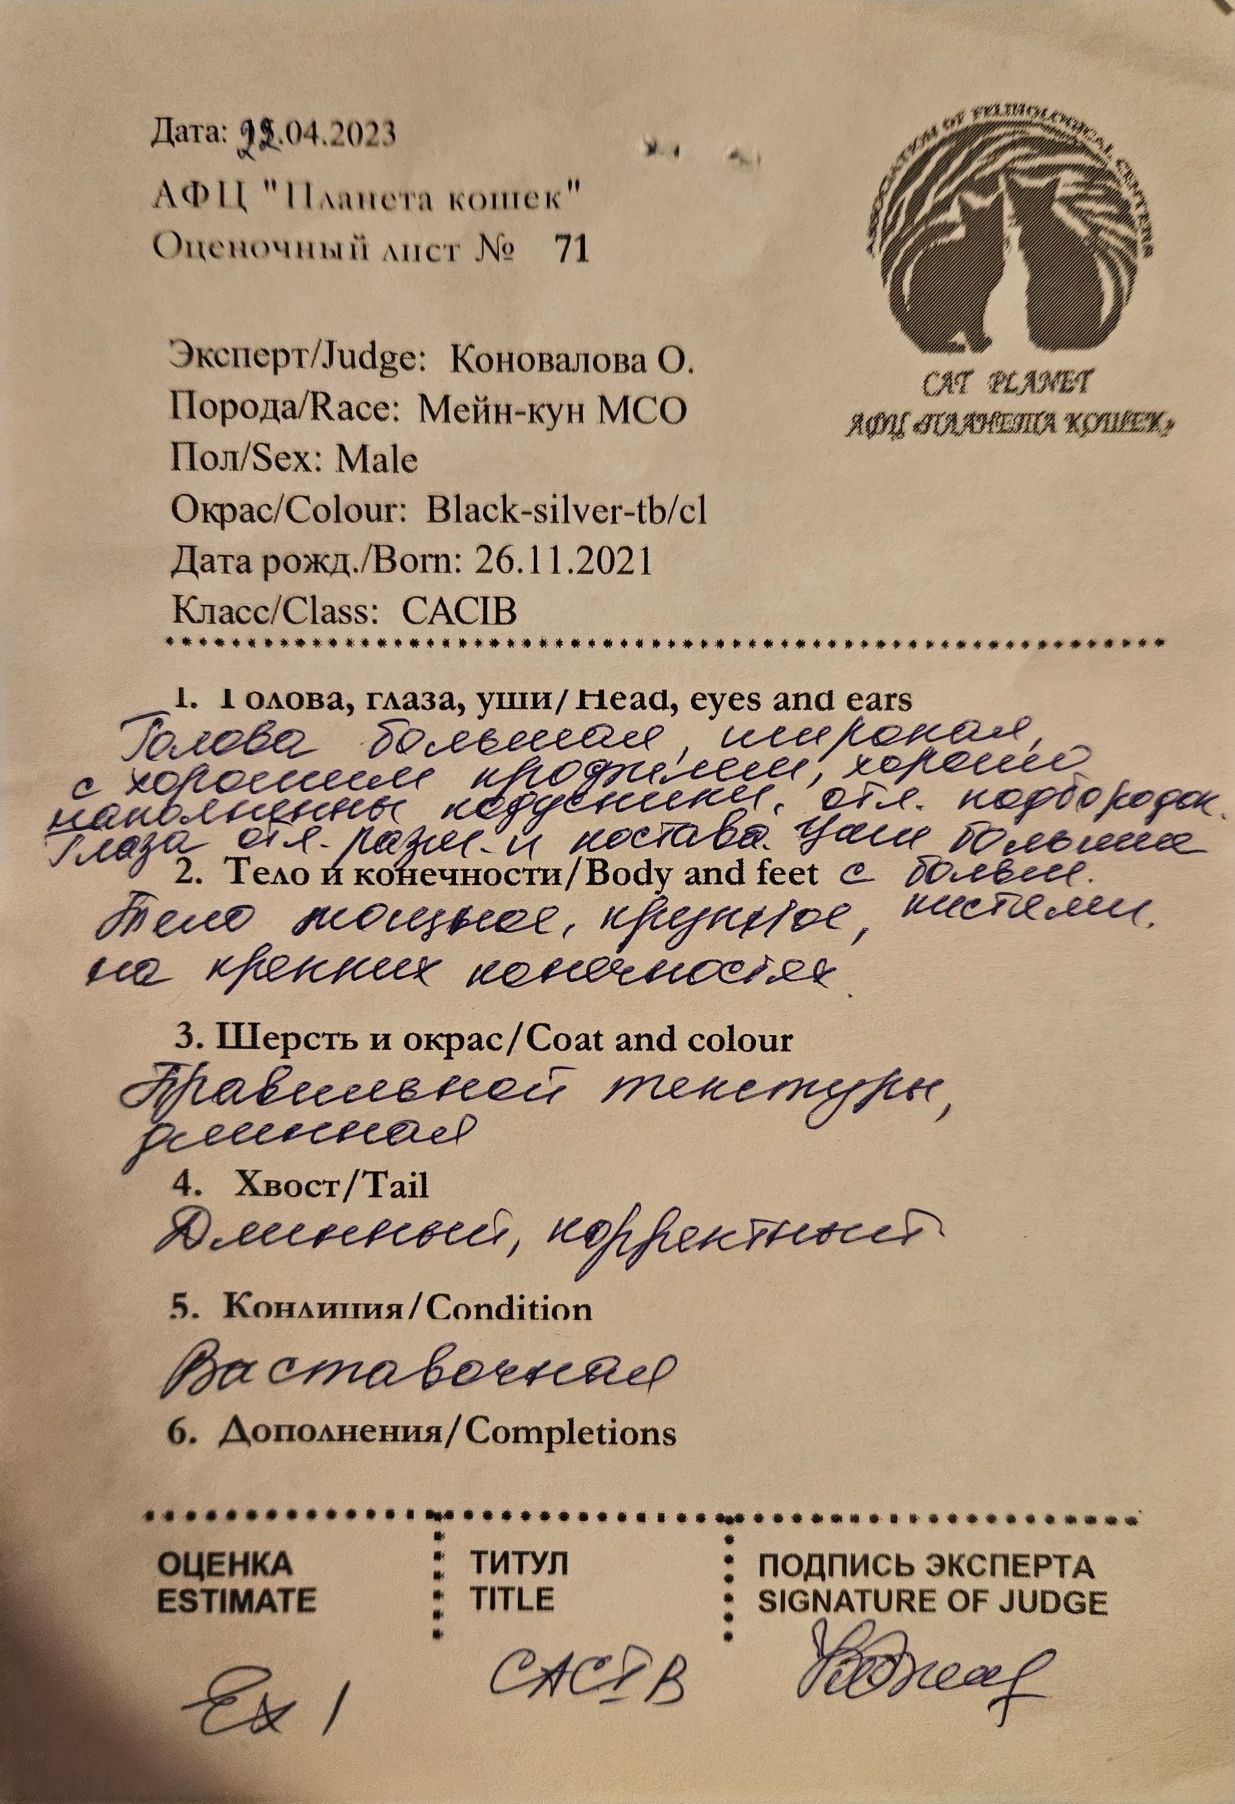 Дата: 22.04.2023
АФЦ "Планета кошек"
Оценочный лист № 71
ASSOCIATION OF FELINOLOGICAL CENTERS
CAT PLANET
АФЦ «ПЛАНЕТА КОШЕК»
Эксперт/Judge: Коновалова О.
Порода/Race: Мейн-кун MCO
Пол/Sex: Male
Окрас/Colour: Black-silver-tb/cl
Дата рожд./Born: 26.11.2021
Класс/Class: CACIB
1. Голова, глаза, уши/Head, eyes and ears
Голова большая, широкая,
с хорошим профилем, хорошо
наполненны подушечки, отл. подбородок.
Глаза отл. разм. и постава. Уши большие
с больш.
кистями.
2. Тело и конечности/Body and feet
Тело мощное, крупное,
на крепких конечностях.
3. Шерсть и окрас/Coat and colour
Правильной текстуры,
длинная
4. Хвост/Tail
Длинный, корректный
5. Кондиция/Condition
Выставочная
6. Дополнения/Completions
ОЦЕНКА
ESTIMATE
ТИТУЛ
TITLE
ПОДПИСЬ ЭКСПЕРТА
SIGNATURE OF JUDGE
Ex 1
CACIB